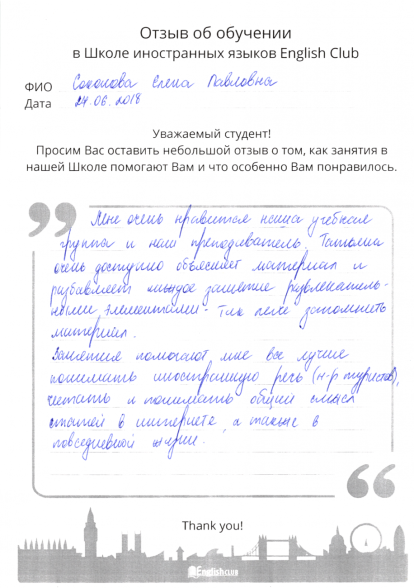 Отзыв об обучении
в Школе иностранных языков English Club
ФИО Соколова Елена Павловна
Дата 24.06.2018
Уважаемый студент!
Просим Вас оставить небольшой отзыв о том, как занятия в
нашей Школе помогают Вам и что особенно Вам понравилось.
Мне очень нравится наша учебная
группа и наш преподаватель. Татьяна
очень доступно объясняет материал и
разбавляет каждое занятие развлекатель-
ными элементами. Так легче запомнить
материал.
Занятия помогают мне все лучше
понимать иностранную речь (н-р туристов),
читать и понимать общий смысл
статей в интернете, а также в
повседневной жизни.
Thank you!
English CLUB